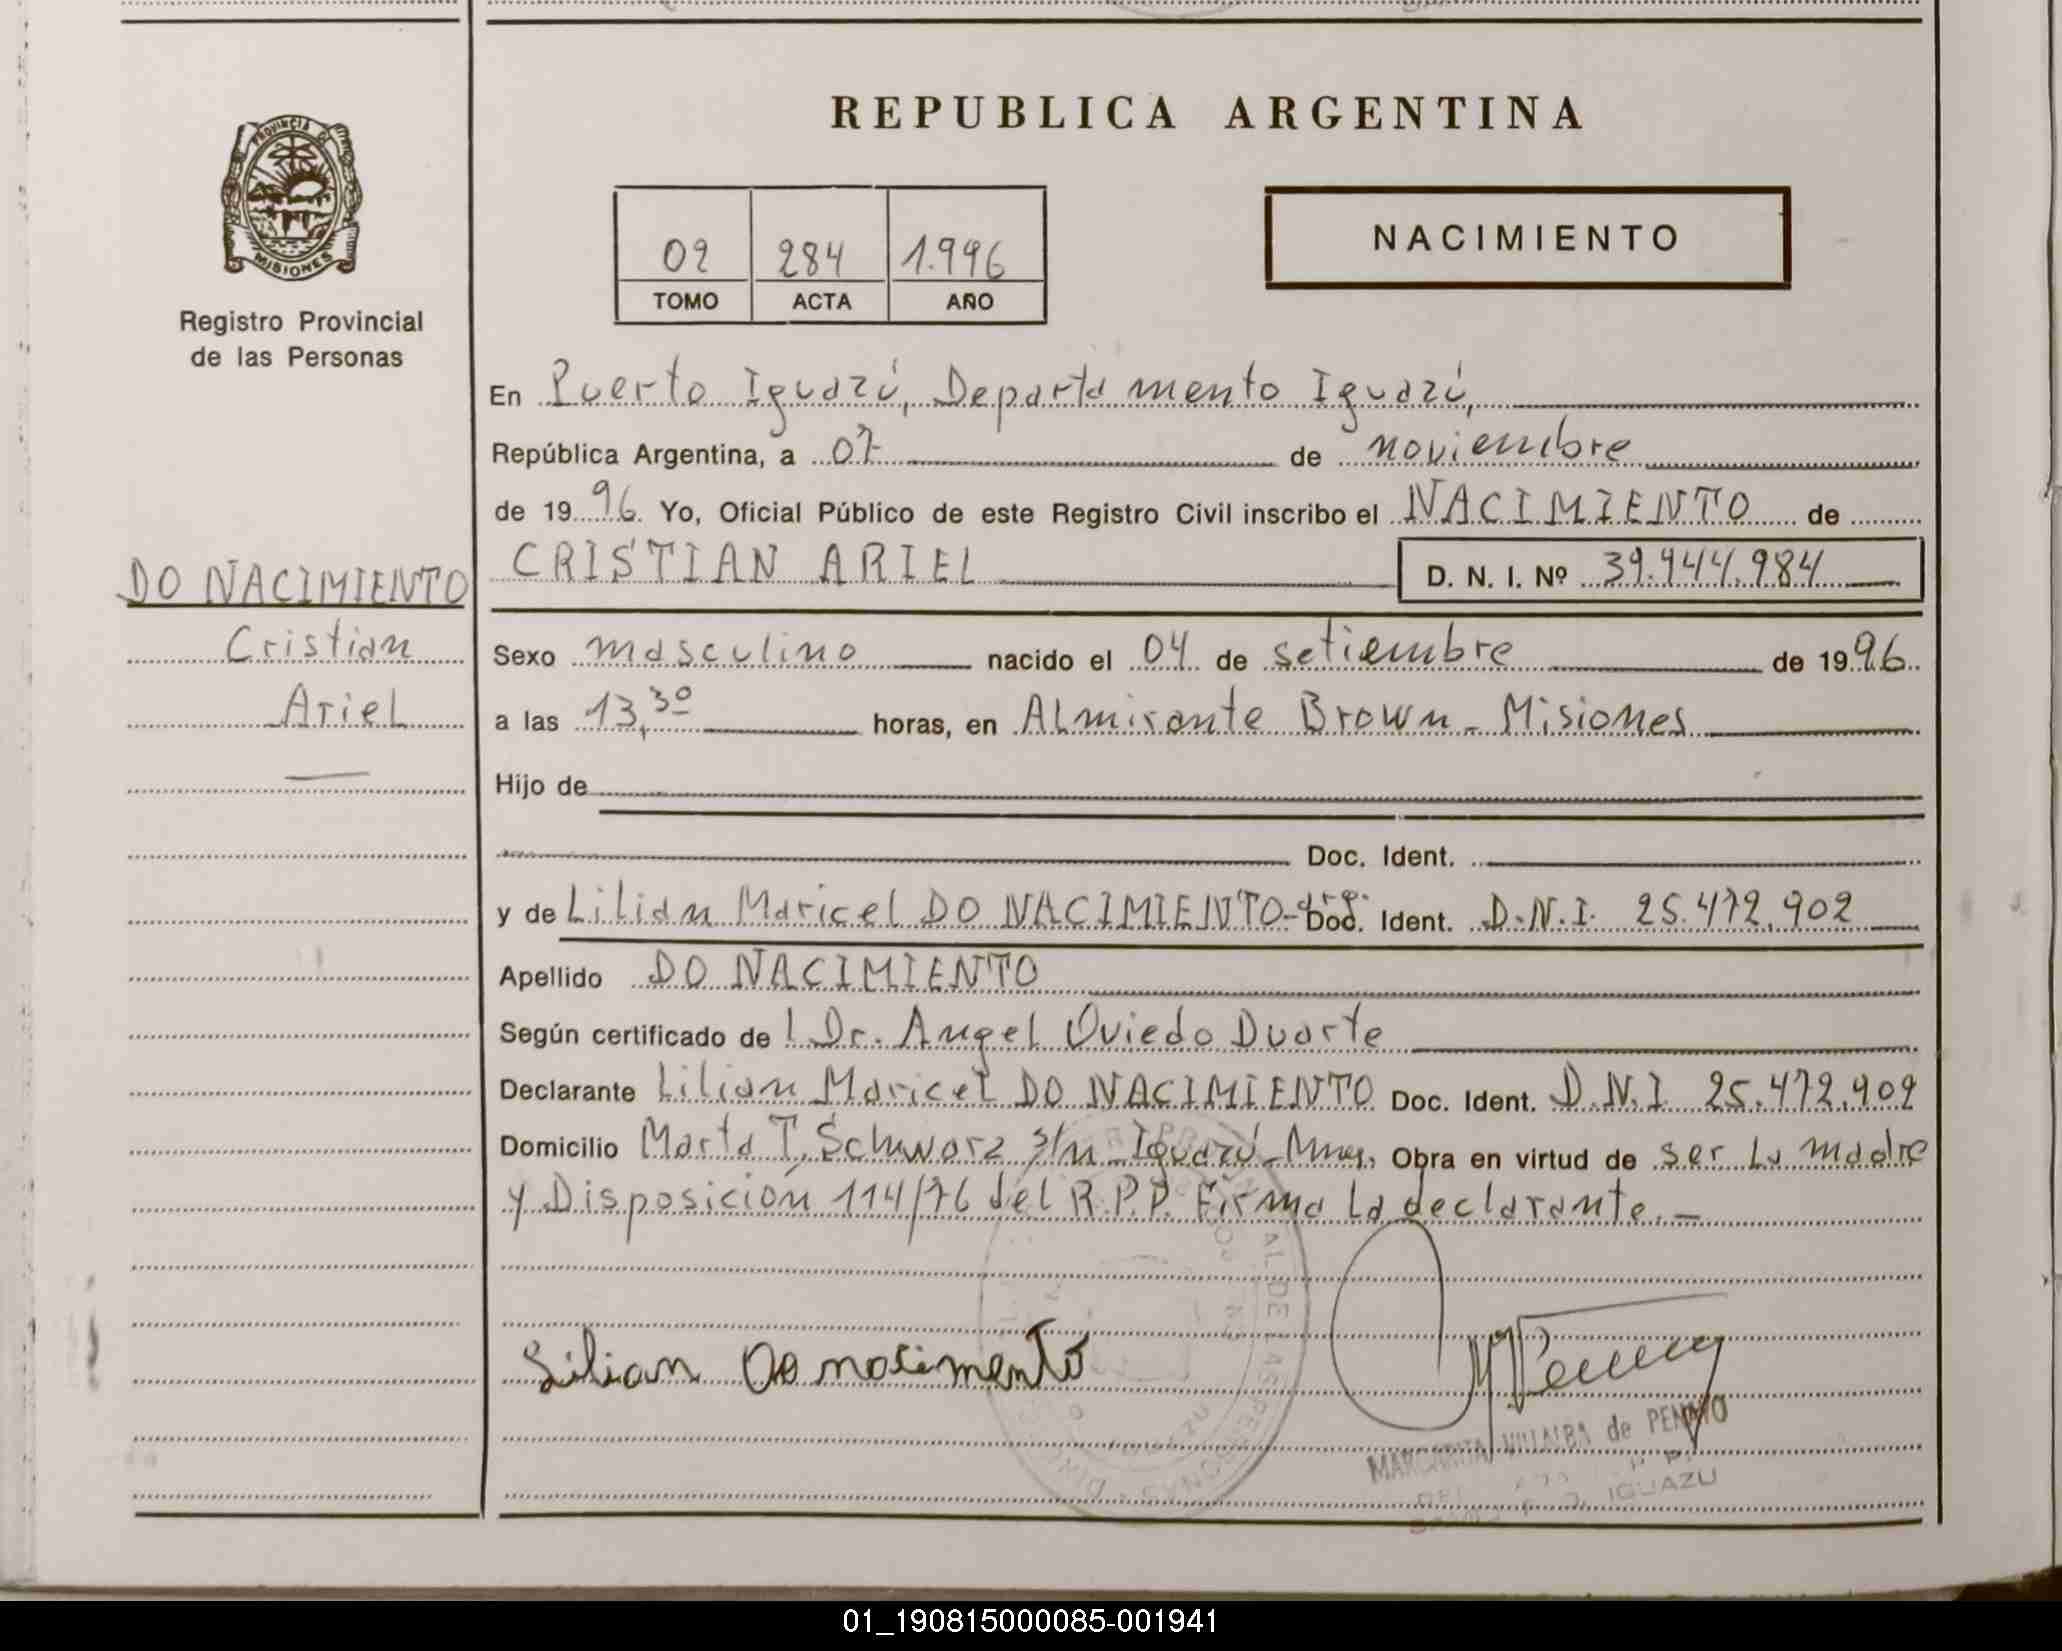 PROVINCIA DE
MISIONES
Registro Provincial
de las Personas
DO NACIMIENTO
Cristian
Ariel
REPUBLICA ARGENTINA
02 284 1.996
TOMO ACTA AÑO
NACIMIENTO
En Puerto Iguazú, Departamento Iguazú,
República Argentina, a 07 de noviembre
de 1996. Yo, Oficial Público de este Registro Civil inscribo el NACIMIENTO de
CRISTIAN ARIEL D. N. I. Nº 39.944.984
Sexo masculino nacido el 04 de setiembre de 1996.
a las 13,30 horas, en Almirante Brown - Misiones
Hijo de
Doc. Ident.
y de Lilian Maricel DO NACIMIENTO-arg. Doc. Ident. D.N.I. 25.472.902
Apellido DO NACIMIENTO
Según certificado de l Dr. Angel Oviedo Duarte
Declarante Lilian Maricel DO NACIMIENTO Doc. Ident. D.N.I. 25.472.902
Domicilio Marta T. Schwarz s/n - Iguazú - Mnes. Obra en virtud de ser la madre
y Disposición 114/76 del R.P.P. Firma la declarante. -
Lilian Do nacimento
MARGARITA VILLALBA de PENAYO
IGUAZU
01_190815000085-001941